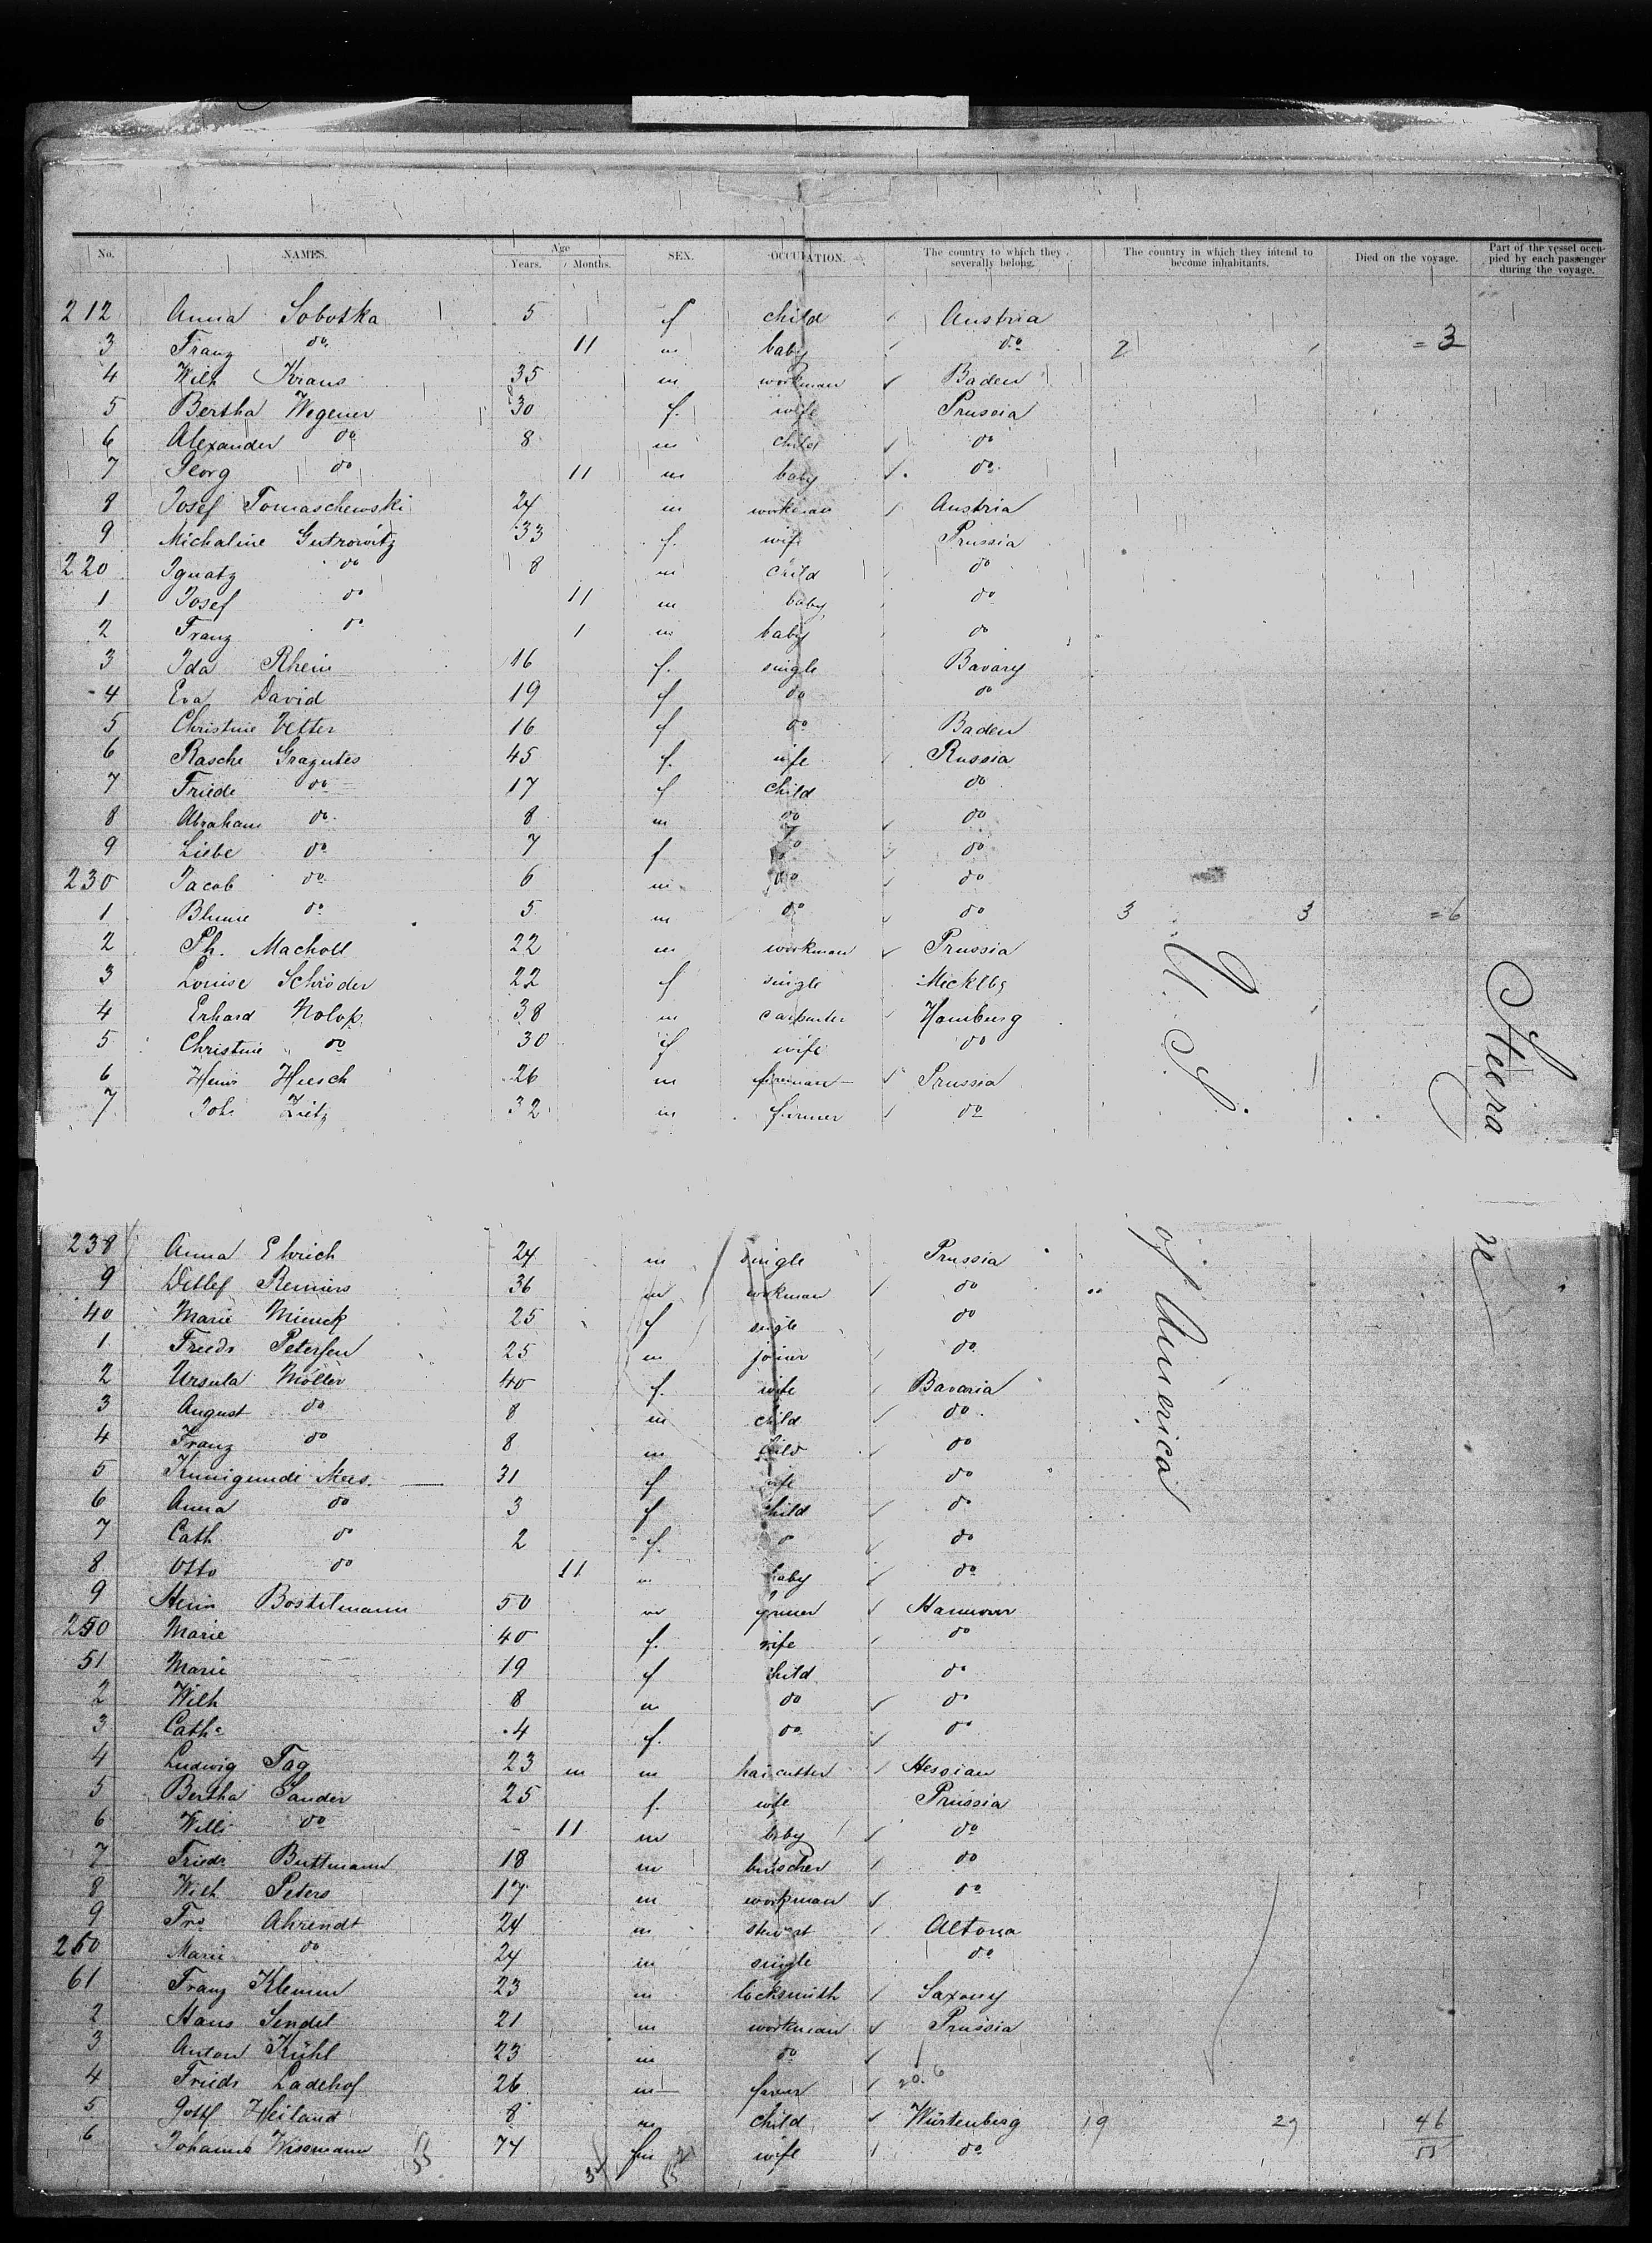 No. NAMES. Age Years. Months. SEX. OCCUPATION. The country to which they severally belong. The country in which they intend to become inhabitants. Died on the voyage. Part of the vessel occupied by each passenger during the voyage.
212 Anna Sobotka 5 f child Austria
3 Franz do 11 m baby do 2 = 3
4 Wilh Kraus 35 m workman Baden
5 Bertha Wegener 30 f. wife Prussia
6 Alexander do 8 m child do
7 Georg do 11 m baby do
8 Josef Tomaschewski 24 m workman Austria
9 Michaline Gutrowitz 33 f. wife Prussia
220 Ignatz do 8 m child do
1 Josef do 11 m baby do
2 Franz do 1 m baby do
3 Ida Rhein 16 f. single Bavary
4 Eva David 19 f do do
5 Christine Vetter 16 f do Baden
6 Rasche Grazutes 45 f. wife Russia
7 Friede do 17 f child do
8 Abraham do 8 m do do
9 Liebe do 7 f do do
230 Jacob do 6 m do do
1 Blume do 5 m do do 3 3 = 6
2 Ph. Macholl 22 m workman Prussia
3 Louise Schröder 22 f single Mecklbg
4 Erhard Nolop 38 m carpenter Hamburg
5 Christine do 30 f wife do
6 Heinr Hiesch 26 m fireman Prussia
7 Joh. Zietz 32 m farmer do
U. S.
Steera
238 Anna Ehrich 24 m single Prussia
9 Detlef Reimers 36 m workman do
40 Marie Mienck 25 f single do
1 Friedr Petersen 25 m joiner do
2 Ursula Möller 40 f. wife Bavaria
3 August do 8 m child do
4 Franz do 8 m child do
5 Kunigunde Mees. 31 f wife do
6 Anna do 3 f child do
7 Cath do 2 f. do do
8 Otto do 11 m baby do
9 Heinr Bostelmann 50 m farmer Hannover
250 Marie 40 f. wife do
51 Marie 19 f child do
2 Wilh 8 m do do
3 Cath. 4 f. do do
4 Ludwig Tag 23 m m haircutter Hessian
5 Bertha Sander 25 f. wife Prussia
6 Willi do - 11 m baby do
7 Friedr Buttmann 18 m butscher do
8 Wilh Peters 17 m workman do
9 Frs Ahrendt 24 m stewart Altona
260 Marie do 24 m single do
61 Franz Klemm 23 m locksmith Saxony
2 Hans Sendel 21 m workman Prussia
3 Anton Kühl 23 m do
4 Friedr Ladehof 26 m farmer do
5 Gottl Heiland 8 m child Würtenberg 19 27 46
6 Johanna Wissmann 74 fm wife do 55
of America